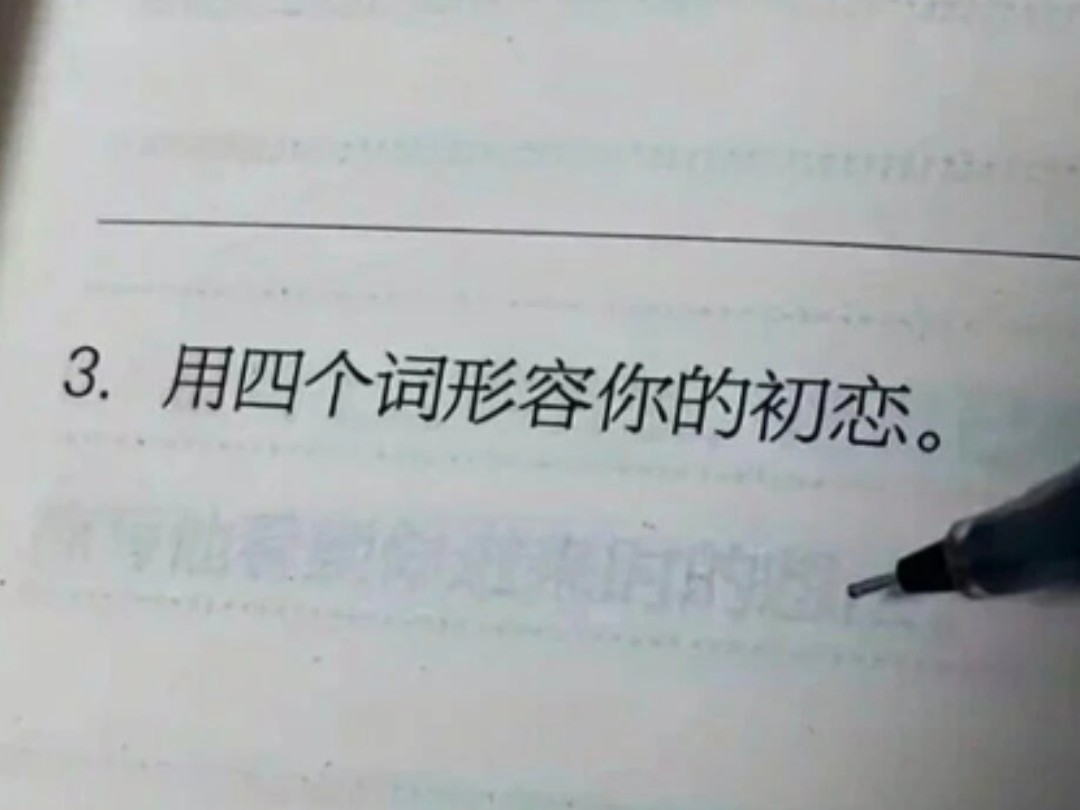 3. 用四个词形容你的初恋。